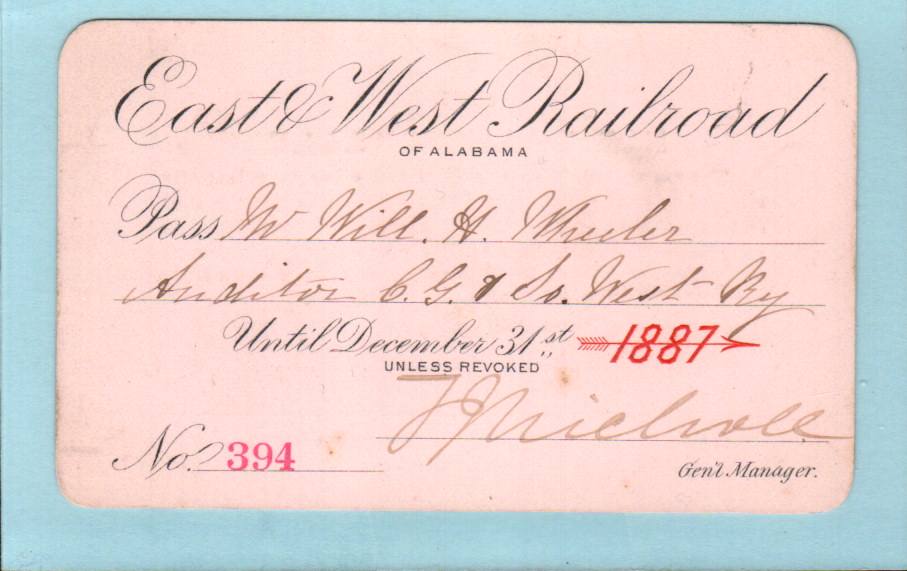 East & West Railroad
OF ALABAMA
Pass Mr Will. H. Wheeler
Auditor C. G. & So. West Ry
Until December 31st 1887
UNLESS REVOKED
No. 394
Gen'l Manager.